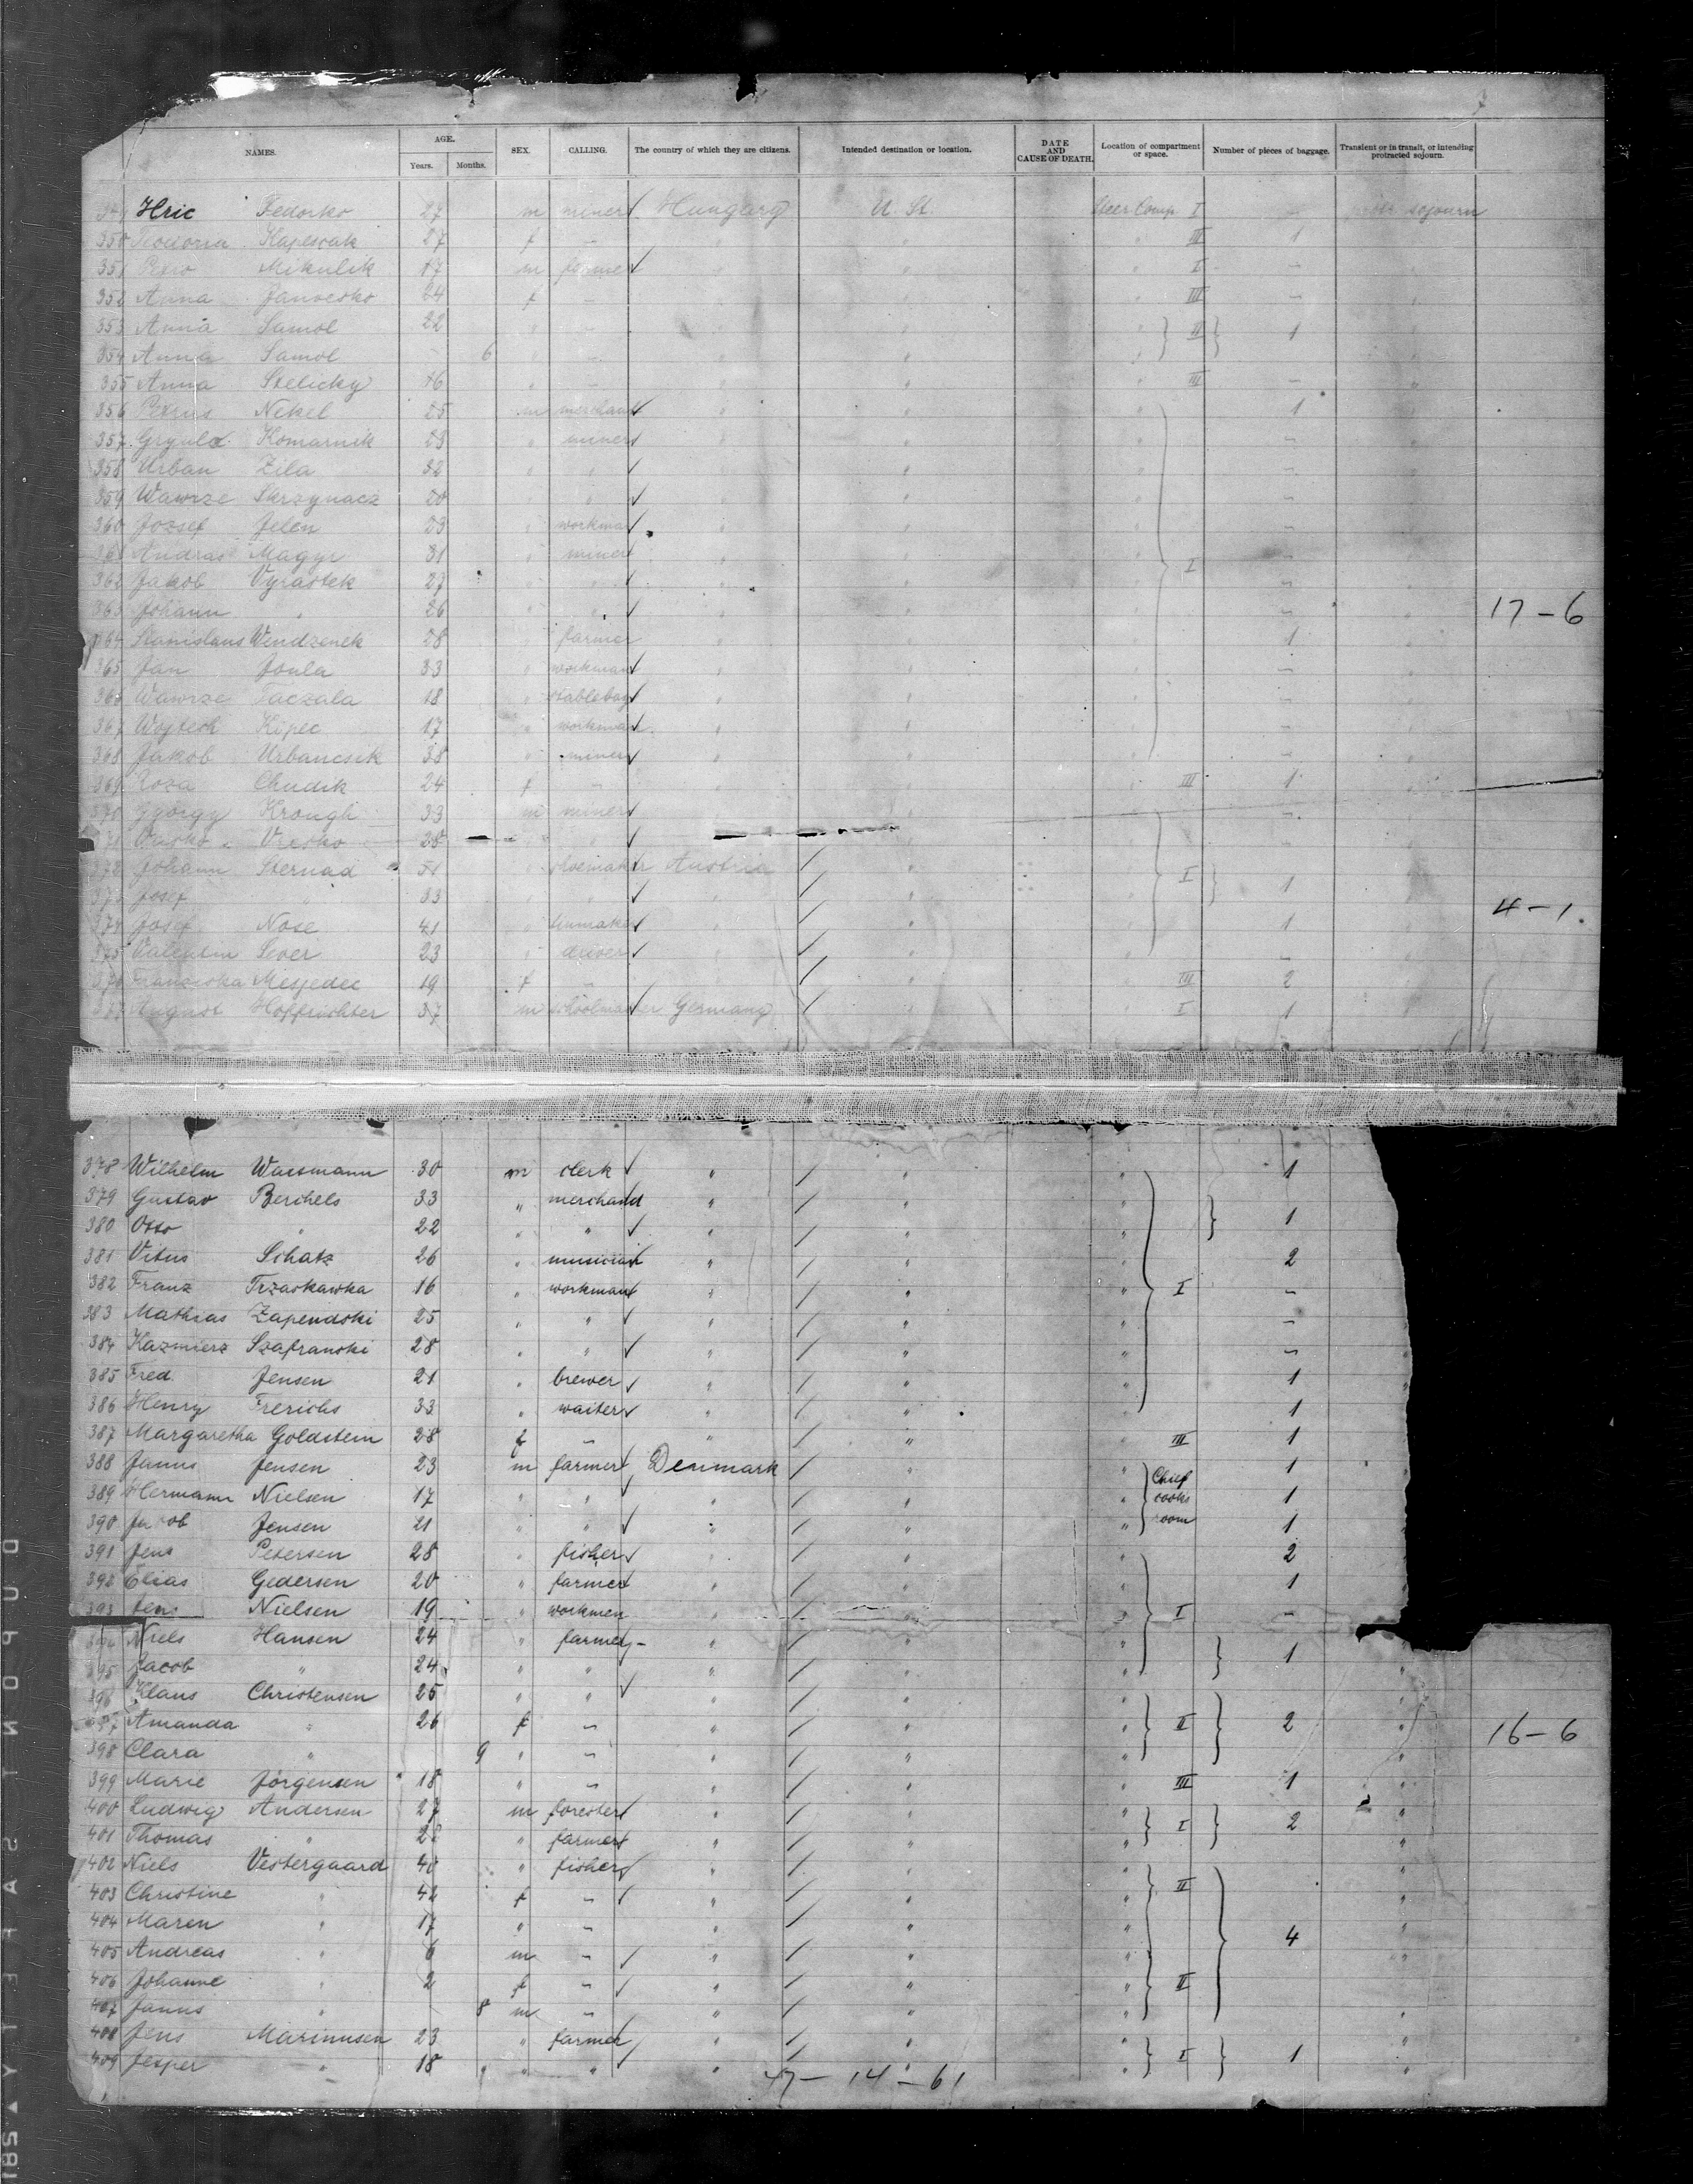 7
NAMES. AGE. Years. Months. SEX. CALLING. The country of which they are citizens. Intended destination or location. DATE AND CAUSE OF DEATH. Location of compartment or space. Number of pieces of baggage. Transient or in transit, or intending protracted sojourn.
Hric Fedorko 27 m miner Hungary U. St. Steer Comp. I – sojourn
350 Kapescak 27 f – " " " III 1 "
351 Mikulik 17 m farmer " " " I – "
352 Anna 24 f – " " " III – "
353 Anna Samol 22 " – " " " II 1 "
354 Anna Samol – 6 " – " " "
355 Anna Stelicky 46 " – " " " III – "
356 Petrus Nekel 25 m merchant " " " 1 "
357 Komarnik 23 " miner " " " – "
358 Urban Zila 32 " " " " " – "
359 Wawrze Skrzynacz 20 " " " " " – "
360 Jozsef Jelen 23 " workman " " " – "
361 Andras Magyr 31 " miner " " " I – "
362 Jakob Vyrastek 27 " " " " " – "
363 Johann " 26 " " " " " – " 17–6
364 Stanislaus Wendzenek 28 " farmer " " " 1 "
365 Jan Joula 33 " workman " " " – "
366 Wawrze 18 " stableboy " " " – "
367 Wojtech Kipec 17 " workman " " " – "
368 Jakob Urbancsik 38 " miner " " " – "
369 Roza Chudik 24 f – " " " III 1 "
370 György Krough 33 m miner " " " – "
371 Vasko Vresko 28 " " " " " – "
372 Johann Sternad 51 " shoemaker Austria " " I 1 "
373 Josef " 33 " " " " " "
374 Josef Nose 41 " " " " 1 " 4–1
375 Valentin Sever 23 " " " " – "
376 Franziska Mesjedec 19 f – " " " III 2 "
377 August Hoffrichter 37 m schoolmaster Germany " " I 1 "
378 Wilhelm Wassmann 30 m clerk " " " 1
379 Gustav Berchels 33 " merchand " " " 1
380 Otto " 22 " " " " "
381 Vitus Schatz 26 " musician " " " 2
382 Franz Trzaskawka 16 " workman " " " I –
383 Mathias Zapendski 25 " " " " " –
384 Kazmierz Szafranski 28 " " " " " –
385 Fred. Jensen 21 " brewer " " " 1
386 Henry Frerichs 33 " waiter " " " 1
387 Margaretha Goldstein 28 f – " " " III 1
388 Janus Jensen 23 m farmer Denmark " " Chief 1
389 Hermann Nielsen 17 " " " " " cooks 1
390 Jacob Jensen 21 " " " " " room 1
391 Jens Petersen 28 " fisher " " " 2
392 Elias Gedersen 20 " farmer " " " 1
393 Jens Nielsen 19 " workmen " " " I –
394 Niels Hansen 24 " farmer " " " 1 "
395 Jacob " 24 " " " " " "
396 Klaus Christensen 25 " " " " " "
397 Amanda " 26 f – " " " II 2 " 16–6
398 Clara " 9 " – " " " "
399 Marie Jörgensen 18 " – " " " III 1 "
400 Ludwig Andersen 27 m forester " " " I 2 "
401 Thomas " 28 " farmer " " " "
402 Niels Vestergaard 40 " fisher " " " "
403 Christine " 42 f – " " " II "
404 Maren " 17 " – " " " 4 "
405 Andreas " 6 m – " " " "
406 Johanne " 2 f – " " " II
407 Janus " – 8 m – " " " "
408 Jens Marinusen 23 " farmer " " " I 1 "
409 Jesper " 18 " " " " " "
47 – 14 – 61
DUPONT SAFETY